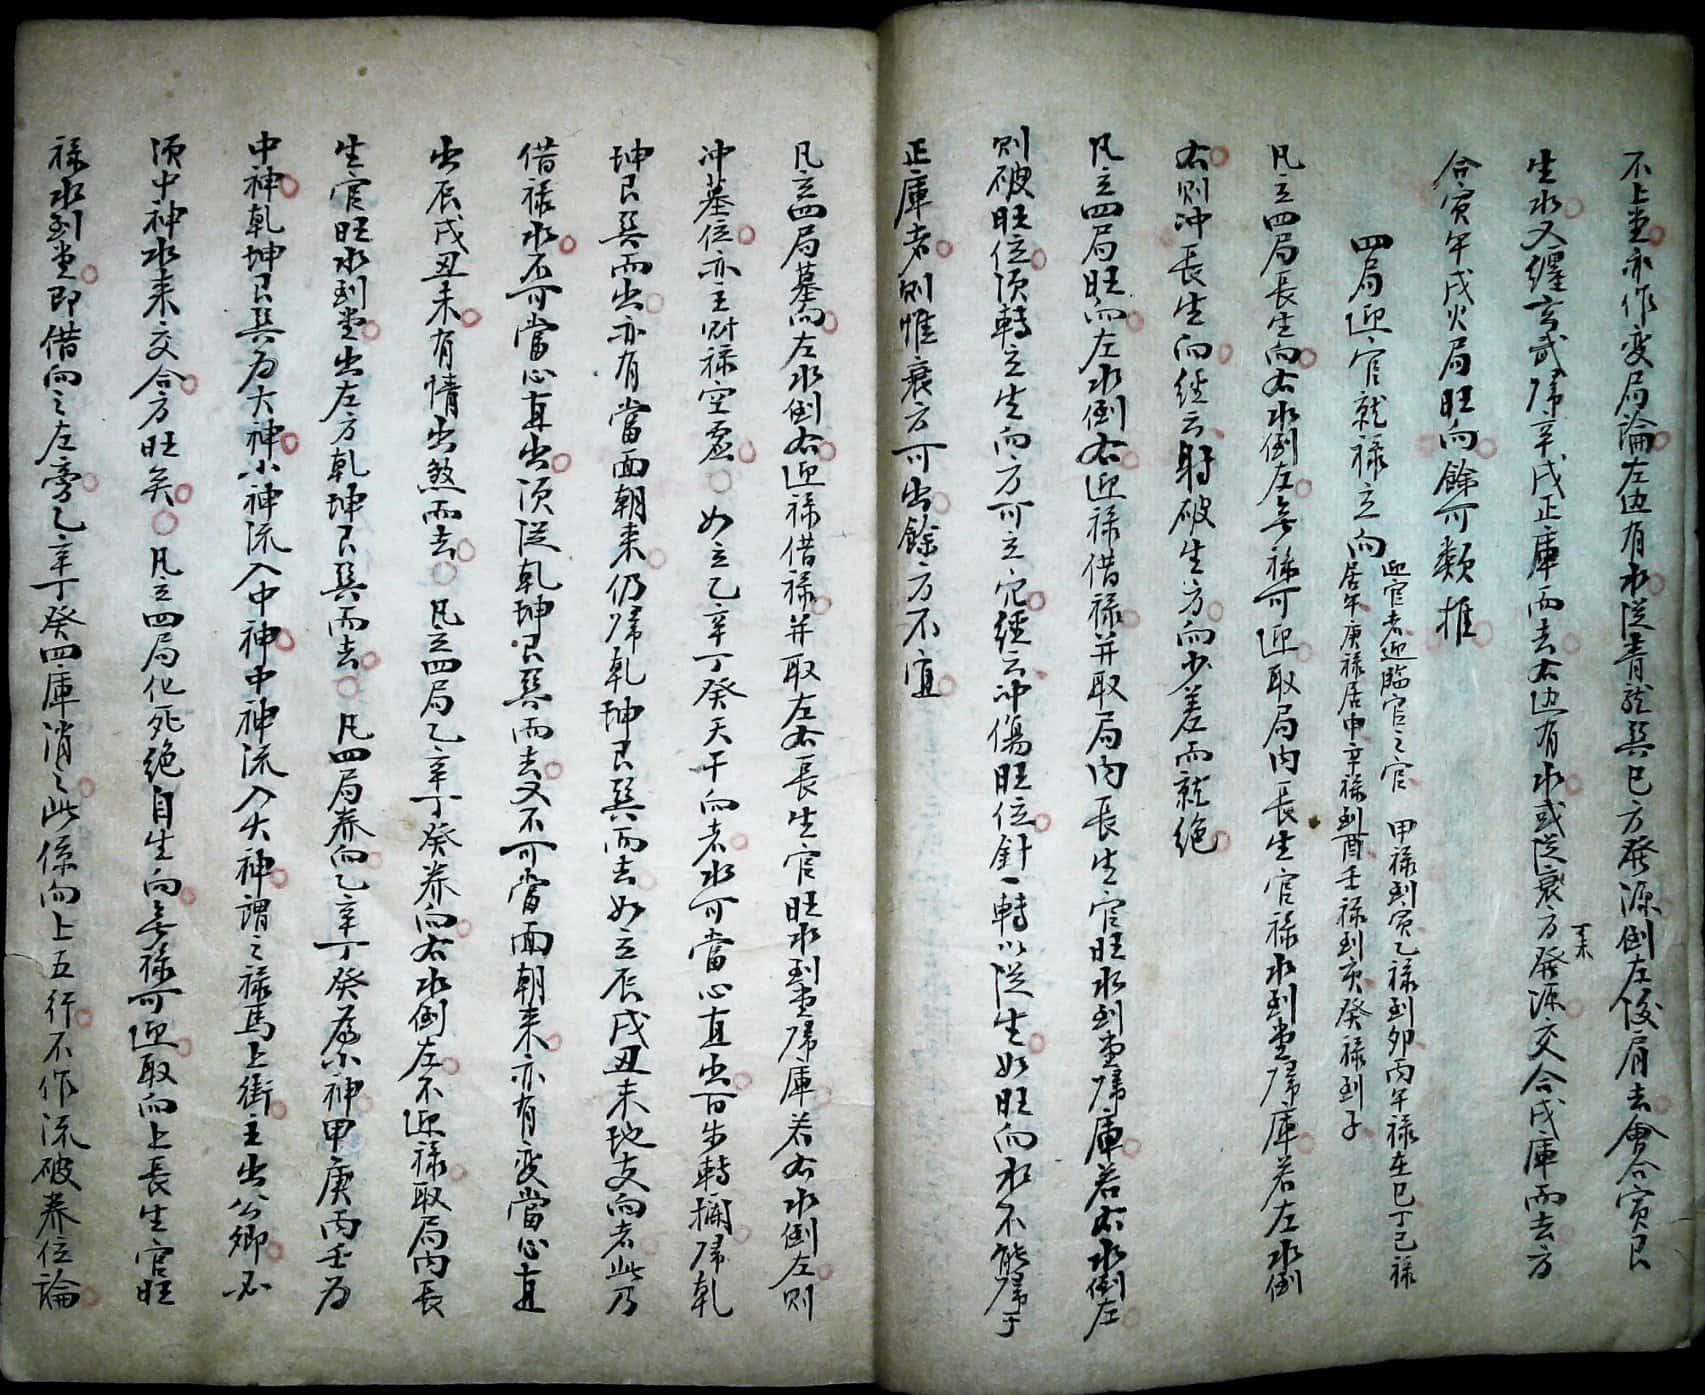 不上堂亦作变局論左边有水從青龍巽巳方發源倒左後肩去會合寅艮
生水又纏玄武歸辛戌正庫而去右边有水或從衰方發源交合戌庫而去方
丁未
合寅午戌火局旺向餘可類推
四局迎官就禄立向
迎官者迎臨官之官 甲禄到寅乙禄到卯丙午禄在巳丁己禄
居午庚禄居申辛禄到酉壬禄到亥癸禄到子
凡立四局長生向右水倒左無禄可迎取局内長生官禄水到堂歸庫若左水倒
右則冲長生向經云射破生方向少差而就绝
凡立四局旺向左水倒右迎禄借禄并取局内長生官旺水到堂歸庫若右水倒左
則破旺位須轉立生向方可立穴經云冲傷旺位針一轉以從生如旺向水不能歸于
正庫者則惟衰方可出餘方不宜
凡立四局墓向左水倒右迎禄借禄并取左右長生官旺水到堂歸庫若右水倒左則
冲墓位亦主財禄空虚 如立乙辛丁癸天干向者水可當心直出百步轉擱歸乾
坤艮巽而出亦有當面朝来仍歸乾坤艮巽而去如立辰戌丑未地支向者此乃
借禄水不可當心直出須從乾坤艮巽而去又不可當面朝来亦有变當心直
出辰戌丑未有情出煞而去 凡立四局乙辛丁癸养向右水倒左不迎禄取局内長
生官旺水到堂出左方乾坤艮巽而去 凡四局养向乙辛丁癸為小神甲庚丙壬为
中神乾坤艮巽为大神小神流入中神中神流入大神謂之禄馬上街主出公卿必
須中神水来交合方旺矣 凡立四局化死绝自生向無禄可迎取向上長生官旺
禄水到堂即借向之左旁乙辛丁癸四庫消之此係向上五行不作流破养位論